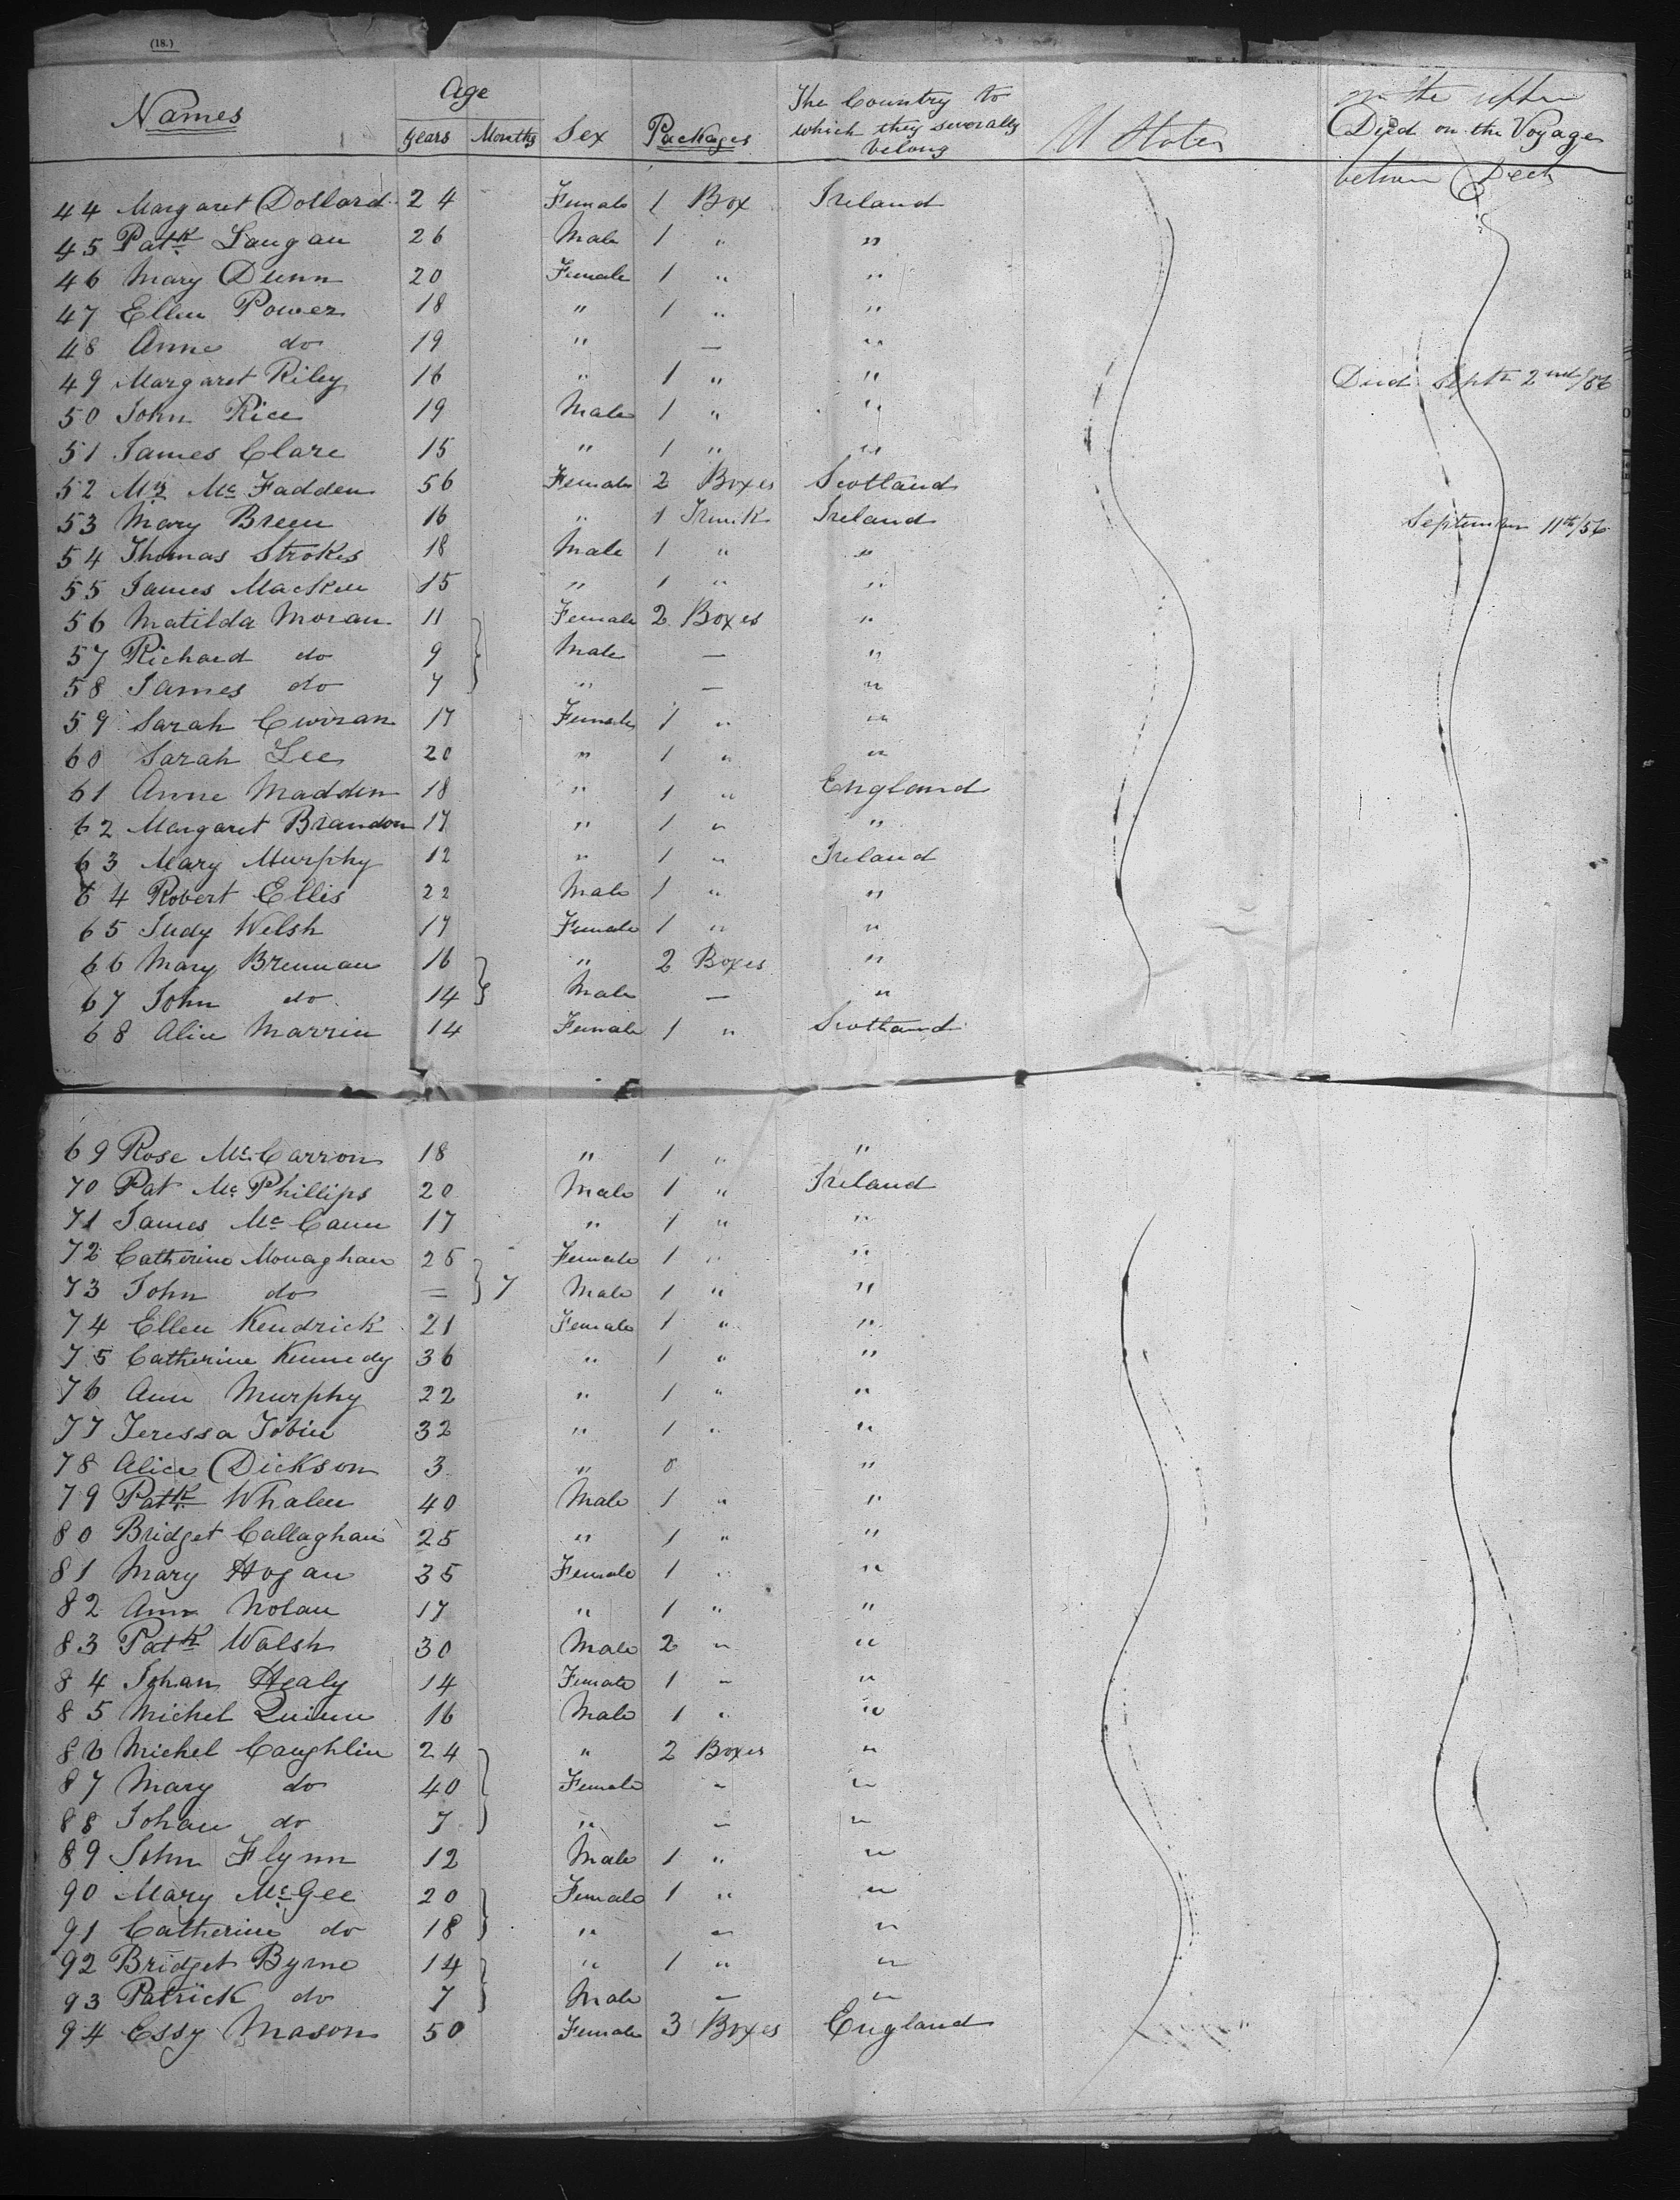 (18.)
Names Age years Months Sex Packages The Country to which they severally belong U States on the upper Died on the Voyage between Deck
44 Margaret Dollard 24 Female 1 Box Ireland
45 Patk Langan 26 Male 1 " "
46 Mary Dunn 20 Female 1 " "
47 Ellen Power 18 " 1 " "
48 Anne do 19 " — "
49 Margaret Riley 16 " 1 " " Died Septr 2nd/56
50 John Rice 19 Male 1 " "
51 James Clare 15 " 1 " "
52 Mrs Mc Fadden 56 Female 2 Boxes Scotland
53 Mary Breen 16 " 1 Trunk Ireland September 11th/56
54 Thomas Strokes 18 Male 1 " "
55 James Macken 15 " 1 " "
56 Matilda Moran 11 Female 2 Boxes "
57 Richard do 9 Male — "
58 James do 7 " — "
59 Sarah Curran 17 Female 1 " "
60 Sarah Lee 20 " 1 " "
61 Anne Madden 18 " 1 " England
62 Margaret Brandon 17 " 1 " "
63 Mary Murphy 12 " 1 " Ireland
64 Robert Ellis 22 Male 1 " "
65 Judy Welsh 17 Female 1 " "
66 Mary Brennan 16 " 2 Boxes "
67 John do 14 Male — "
68 Alice Marrin 14 Female 1 " Scotland
69 Rose Mc Carron 18 " 1 " "
70 Pat Mc Phillips 20 Male 1 " Ireland
71 James Mc Cann 17 " 1 " "
72 Catherine Monaghan 25 Female 1 " "
73 John do = 7 Male 1 " "
74 Ellen Kendrick 21 Female 1 " "
75 Catherine Kennedy 36 " 1 " "
76 Ann Murphy 22 " 1 " "
77 Teressa Tobin 32 " 1 " "
78 Alice Dickson 3 " 0 "
79 Patk Whalen 40 Male 1 " "
80 Bridget Callaghan 25 " 1 " "
81 Mary Hogan 35 Female 1 " "
82 Ann Nolan 17 " 1 " "
83 Patk Walsh 30 Male 2 " "
84 Johan Healy 14 Female 1 " "
85 Michel Quinn 16 Male 1 " "
86 Michel Caughlin 24 " 2 Boxes "
87 Mary do 40 Female " "
88 Johan do 7 " — "
89 John Flynn 12 Male 1 " "
90 Mary Mc Gee 20 Female 1 " "
91 Catherine do 18 " — "
92 Bridget Byrne 14 " 1 " "
93 Patrick do 7 Male — "
94 Essy Mason 50 Female 3 Boxes England